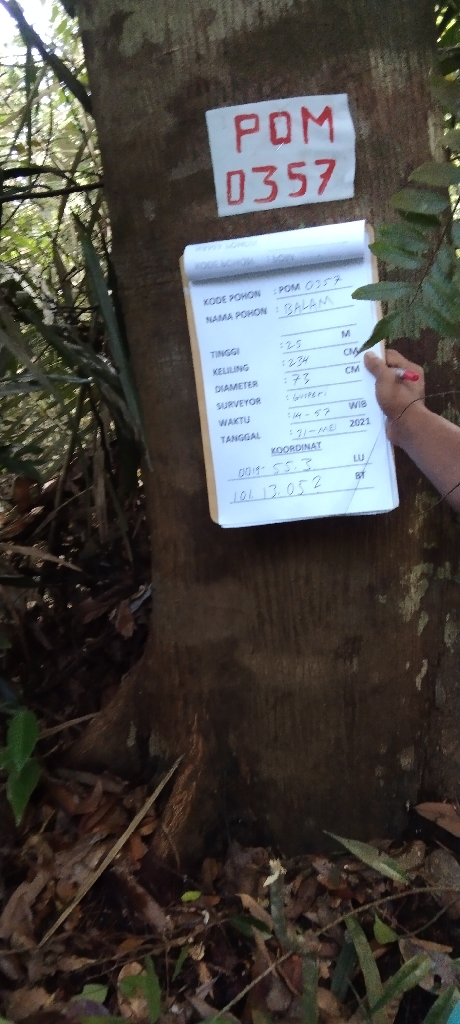 POM
0357
KODE POHON : POM 0357
NAMA POHON : BALAM
TINGGI : 25 M
KELILING : 234 CM
DIAMETER : 73 CM
SURVEYOR :
WAKTU : 14-57 WIB
TANGGAL : 31-MEI 2021
KOORDINAT
0019-55.3 LU
101.13.052 BT